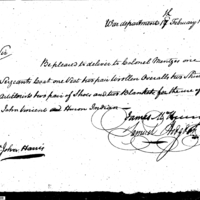 War department 17th February
Sir
Be pleased to deliver to Colonel Mentges one
Sergeants Coat one Vest two pair Woollen Overalls two Shirts
additional two pair of Shoes and two Blankets for the use of
John and Huron Indian
James McHenry
Samuel Hodgdon
John Harris